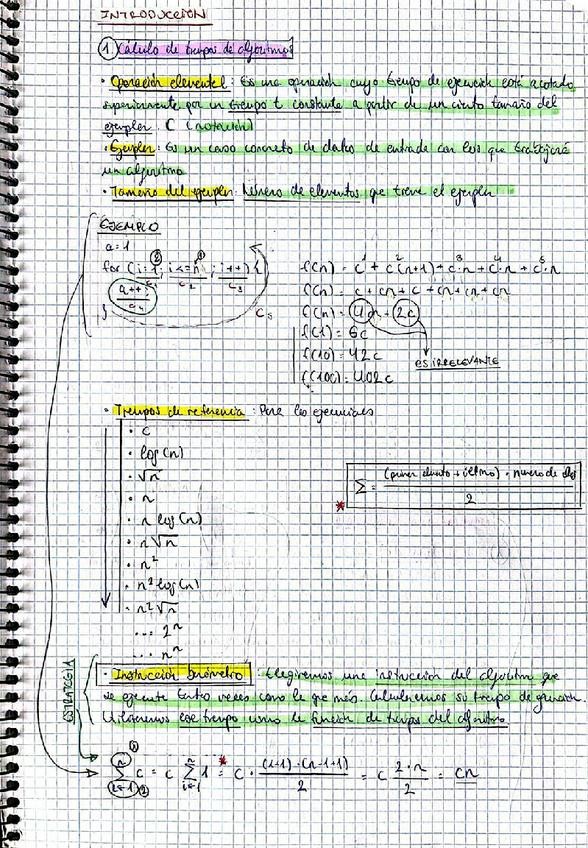 INTRODUCCIÓN
1 Cálculo de tiempos de algoritmos
· Operación elemental: Es una operación cuyo tiempo de ejecución está acotado
superiormente por un tiempo t constante a partir de un cierto tamaño del
ejemplar. C (notación)
· Ejemplar: Es un caso concreto de datos de entrada con los que trabajará
un algoritmo
· Tamaño del ejemplar: Número de elementos que tiene el ejemplar
EJEMPLO
a=1
for (i=1; i<=n; i++) {
c1 c2 c3
a++;
c4
}
c5
f(n) = c + c(n+1) + c·n + c·n + c·n
1 2 3 4 5
f(n) = c + cn + c + cn + cn + cn
f(n) = 4cn + 2c
f(1) = 6c
f(10) = 42c
f(100) = 402c
es IRRELEVANTE
· Tiempos de referencia: Para los ejemplares
· c
· log(n)
· √n
· n
· n log(n)
· n√n
· n²
· n² log(n)
· n²√n
... 2ⁿ
... nⁿ
Σ = (primer elemento + último) · numero de elem / 2
*
ESTRATEGIA
· Instrucción barómetro: Elegiremos una instrucción del algoritmo que
se ejecute tantas veces como la que más. Calcularemos su tiempo de ejecución.
Utilizaremos ese tiempo como la función de tiempos del algoritmo
Σ(i=1)^n c = c Σ(i=1)^n 1 =* c · (1+1)·(n-1+1) / 2 = c 2·n / 2 = cn